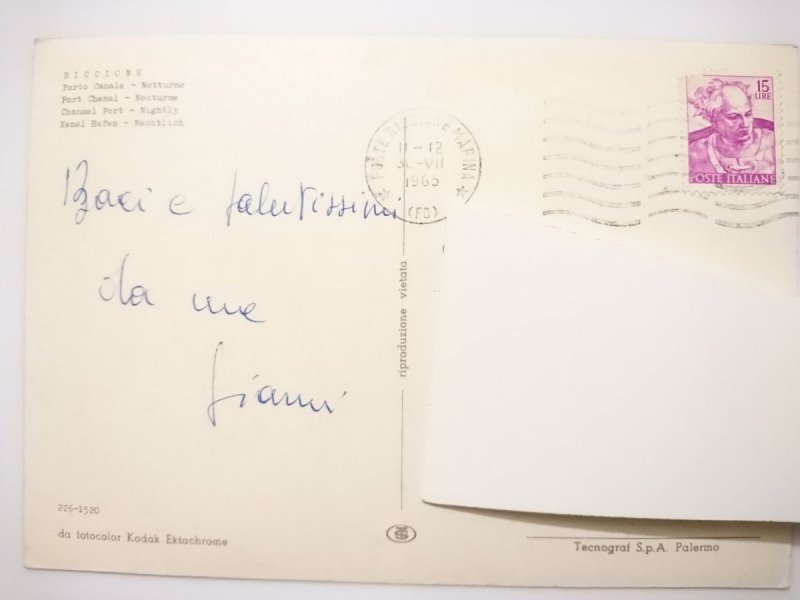 RICCIONE
Porto Canale - Notturno
Port Chenal - Nocturne
Channel Port - Nightly
Kenal Hafen - Nachtlich
POSTE RICCIONE MARINA
11-12
30-VII
1965
(FO)
15
LIRE
POSTE ITALIANE
Baci e salutissimi
da me
Gianni
riproduzione vietata
226-1520
da fotocolor Kodak Ektachrome
Tecnograf S.p.A. Palermo